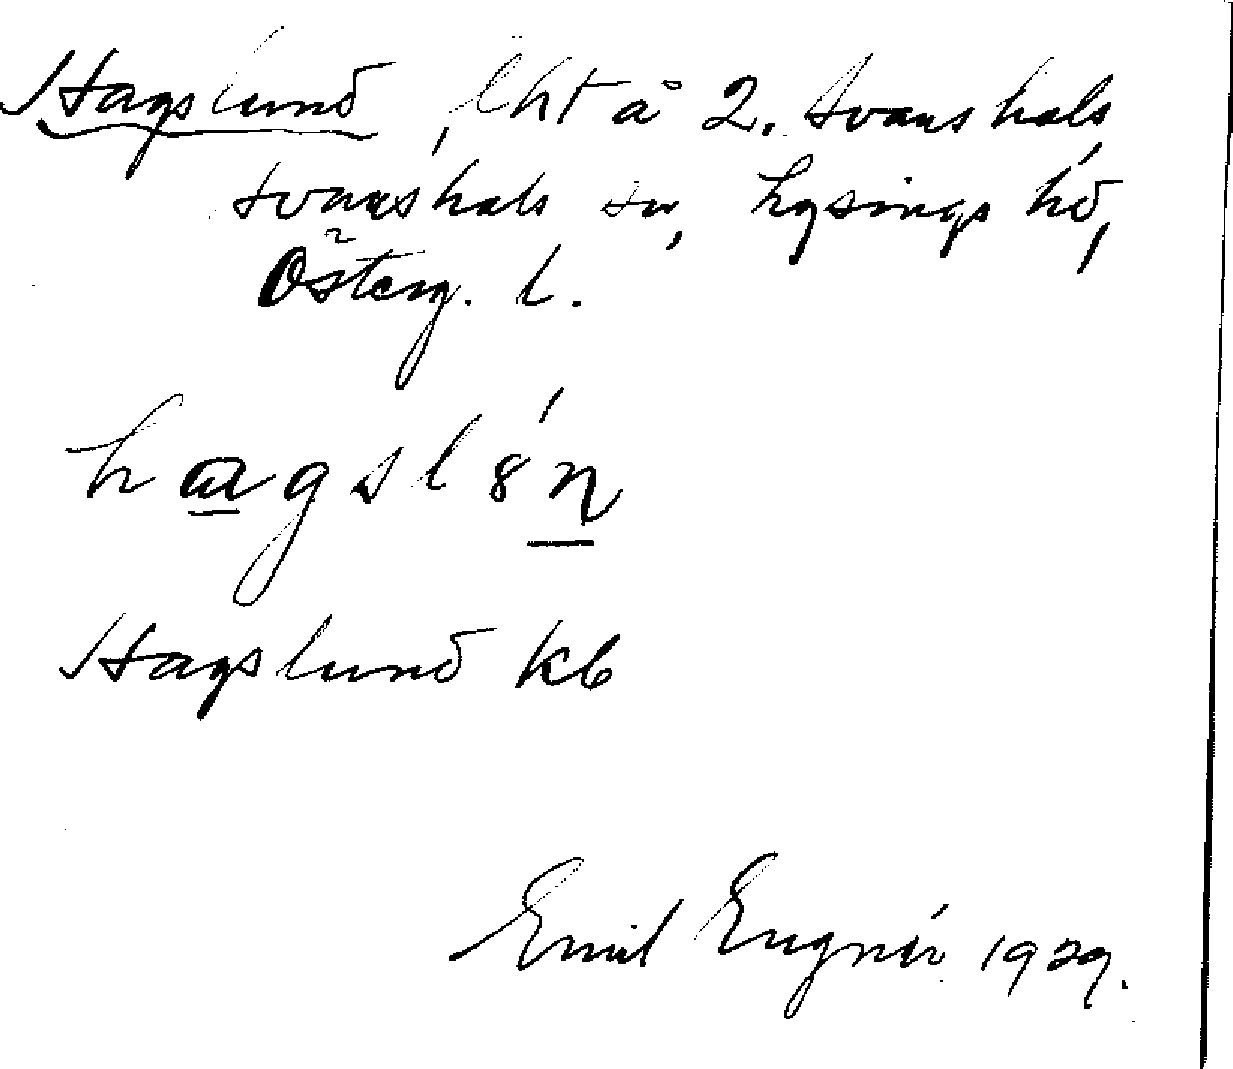 Hagslund, lht å 2. Svanshals
Svanshals sn, Lysings hd,
Österg. l.
hagslǿn
Hagslund kb
Emil Engnér 1929.